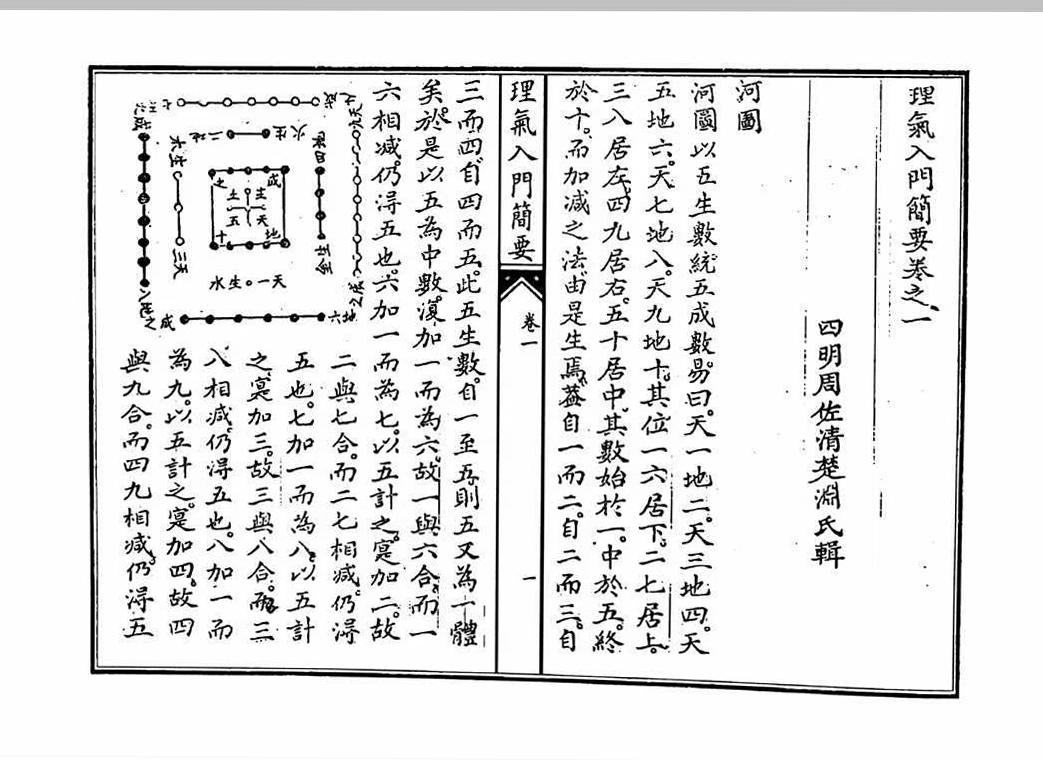 理氣入門簡要卷之一
四明周佐清楚淵氏輯
河圖
河圖以五生數統五成數易曰。天一地二。天三地四。天
五地六。天七地八。天九地十。其位一六居下。二七居上。
三八居左。四九居右。五十居中。其數始於一。中於五。終
於十。而加減之法。由是生焉。蓋自一而二。自二而三。自
理氣入門簡要
卷一
一
三而四。自四而五。此五生數。自一至五。則五又為一體
矣。於是以五為中數。復加一而為六。故一與六合。而一
六相減。仍得五也。六加一而為七。以五計之。寔加二。故
二與七合。而二七相減。仍得
五也。七加一而為八。以五計
之。寔加三。故三與八合。而三
八相減。仍得五也。八加一而
為九。以五計之。寔加四。故四
與九合。而四九相減。仍得五
地二生火
天三生木
天一生水
天五生土
地十成之
地六成